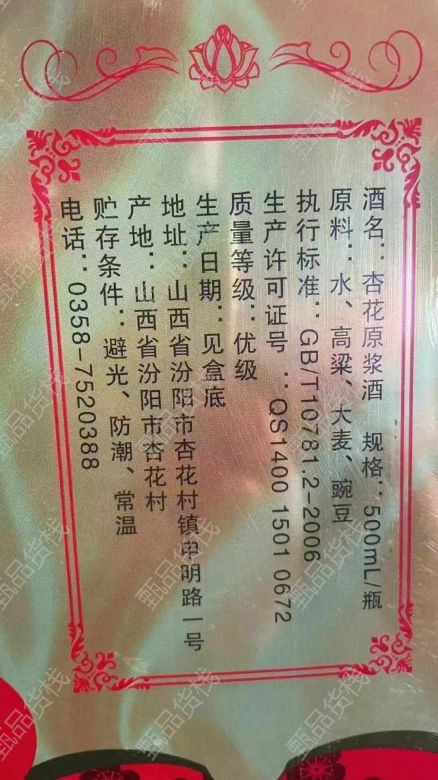 酒名：杏花原浆酒 规格：500mL/瓶
原料：水、高粱、大麦、豌豆
执行标准：GB/T10781.2-2006
生产许可证号：QS1400 1501 0672
质量等级：优级
生产日期：见盒底
地址：山西省汾阳市杏花村镇申明路一号
产地：山西省汾阳市杏花村
贮存条件：避光、防潮、常温
电话：0358-7520388
甄品货栈